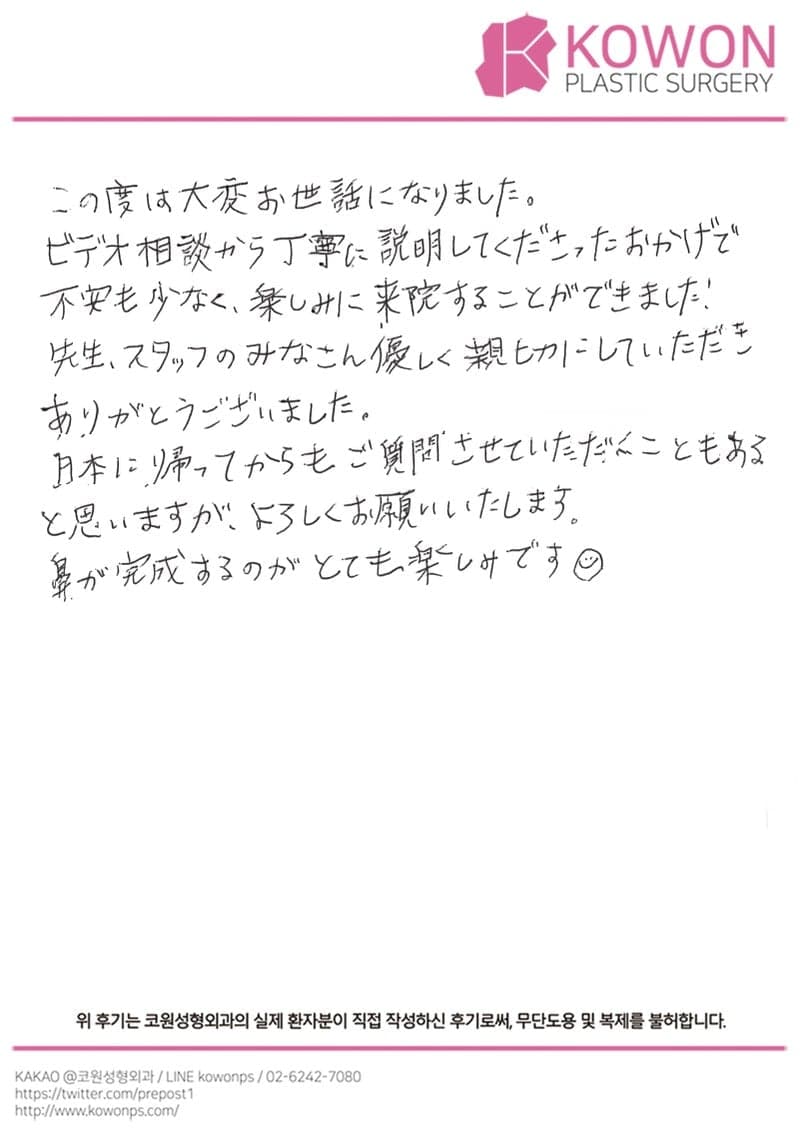 KOWON
PLASTIC SURGERY
この度は大変お世話になりました。
ビデオ相談から丁寧に説明してくださったおかげで
不安も少なく、楽しみに来院することができました!
先生、スタッフのみなさん優しく親切にしていただき
ありがとうございました。
日本に帰ってからもご質問させていただくこともある
と思いますが、よろしくお願いいたします。
鼻が完成するのがとても楽しみです☺
위 후기는 코원성형외과의 실제 환자분이 직접 작성하신 후기로써, 무단도용 및 복제를 불허합니다.
KAKAO @코원성형외과 / LINE kowonps / 02-6242-7080
https://twitter.com/prepost1
http://www.kowonps.com/